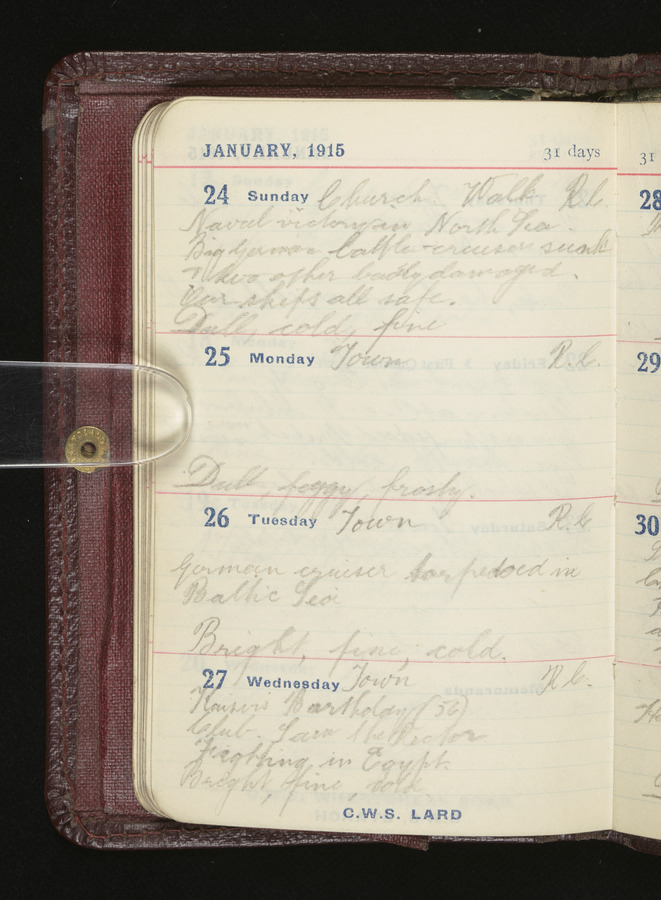 JANUARY, 1915 31 days
24 Sunday Church. Walk R.C.
Naval victory in North Sea.
Big German battle-cruiser sunk
& two other badly damaged.
Our ships all safe.
Dull, cold, fine
25 Monday Town R.C.
Dull, foggy, frosty.
26 Tuesday Town R.C.
German cruiser torpedoed in
Baltic Sea
Bright, fine, cold.
27 Wednesday Town R.C.
Kaiser's Birthday (56)
Club. Saw the Rector
Fighting in Egypt
Bright, fine, cold
C.W.S. LARD
31
28
29
30